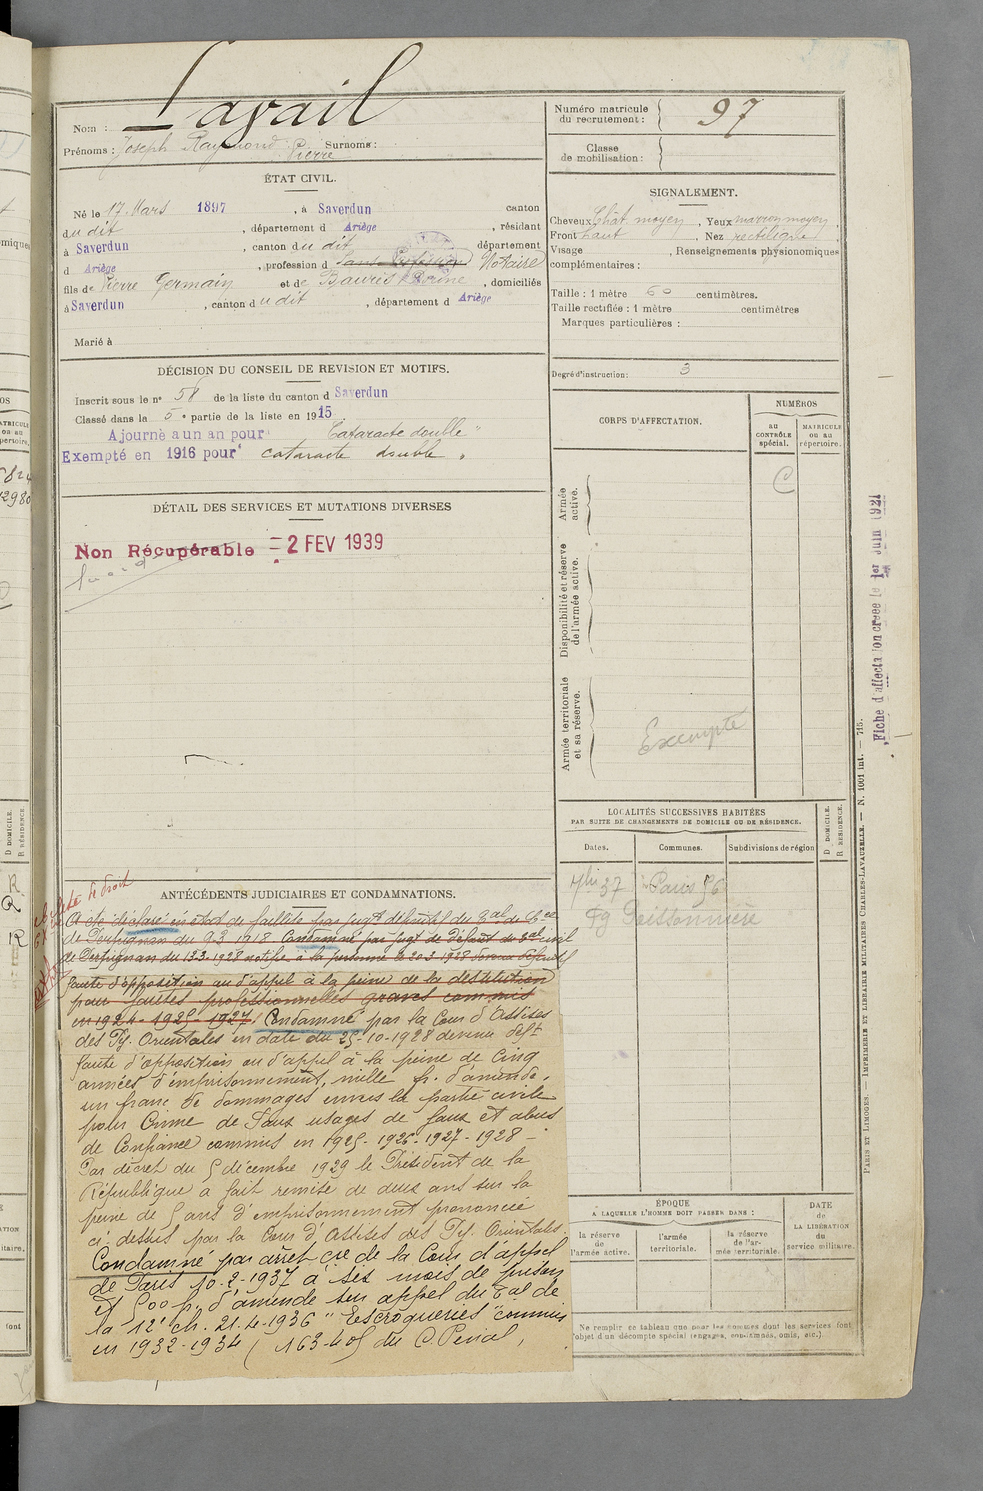 Nom : Lavail
Prénoms : Joseph Raymond Pierre Surnoms :
Numéro matricule du recrutement : 97
Classe de mobilisation :
ÉTAT CIVIL.
Né le 17 Mars 1897, à Saverdun canton
du dit, département d Ariège, résidant
à Saverdun, canton du dit département
d Ariège, profession d Sans Profession Notaire
fils de Pierre Germain et de , domiciliés
à Saverdun, canton du dit, département d Ariège
Marié à
SIGNALEMENT.
Cheveux Chât. moyen, Yeux marron moyen
Front haut, Nez rectiligne
Visage , Renseignements physionomiques
complémentaires :
Taille : 1 mètre 60 centimètres.
Taille rectifiée : 1 mètre centimètres
Marques particulières :
Degré d'instruction : 3
DÉCISION DU CONSEIL DE REVISION ET MOTIFS.
Inscrit sous le n° 58 de la liste du canton d Saverdun
Classé dans la 5e partie de la liste en 1915.
Ajourné a un an pour "Cataracte double"
Exempté en 1916 pour "cataracte double"
DÉTAIL DES SERVICES ET MUTATIONS DIVERSES
Non Récupérable = 2 FEV 1939
CORPS D'AFFECTATION.
NUMÉROS
au CONTRÔLE spécial.
MATRICULE ou au répertoire.
C
Armée active.
Disponibilité et réserve de l'armée active.
Armée territoriale et sa réserve.
Exempté
Fiche d'affectation créée le 1er Juin 1921
LOCALITÉS SUCCESSIVES HABITÉES
PAR SUITE DE CHANGEMENTS DE DOMICILE OU DE RÉSIDENCE.
Dates.
Communes.
Subdivisions de région
D DOMICILE.
R RÉSIDENCE.
7bre 37 Paris 56
Fg Poissonnière
ANTÉCÉDENTS JUDICIAIRES ET CONDAMNATIONS.
A été déclaré en état de faillite par jugt défaut du Bal de Cce
de Perpignan du 9.3.1918 Condamné par jugt de défaut du Bal civil
de Perpignan du 13-3-1928 notifié à la personne le 20-3-1928 devenu définitif
faute d'opposition ou d'appel à la peine de la destitution
pour fautes professionnelles graves commis
en 1924-1925-1927. Condamné par la Cour d'Assises
des Py. Orientales en date du 25-10-1928 devenu déft
faute d'opposition ou d'appel à la peine de cinq
années d'emprisonnement, mille fr. d'amende,
un franc de dommages envers la partie civile
pour Crime de Faux usages de faux et abus
de Confiance commis en 1925-1926-1927-1928 -
Par décret du 5 décembre 1929 le Président de la
République a fait remise de deux ans sur la
peine de 5 ans d'emprisonnement prononcée
ci-dessus par la Cour d'Assises des Py. Orientales.
Condamné par arrêt cre de la Cour d'appel
de Paris 10-2-1937 à six mois de prison
et 500 f. d'amende sur appel du Bal de
la 12e ch. 21-4-1936 "Escroqueries" commis
en 1932-1934 (163-405 du C. Pénal,
ÉPOQUE
A LAQUELLE L'HOMME DOIT PASSER DANS :
la réserve de l'armée active.
l'armée territoriale.
la réserve de l'armée territoriale.
DATE de LA LIBÉRATION du service militaire.
Ne remplir ce tableau que pour les hommes dont les services font
l'objet d'un décompte spécial (engagés, condamnés, omis, etc.)
PARIS ET LIMOGES. — IMPRIMERIE ET LIBRAIRIE MILITAIRES CHARLES-LAVAUZELLE. — N. 1001 int. — 715.